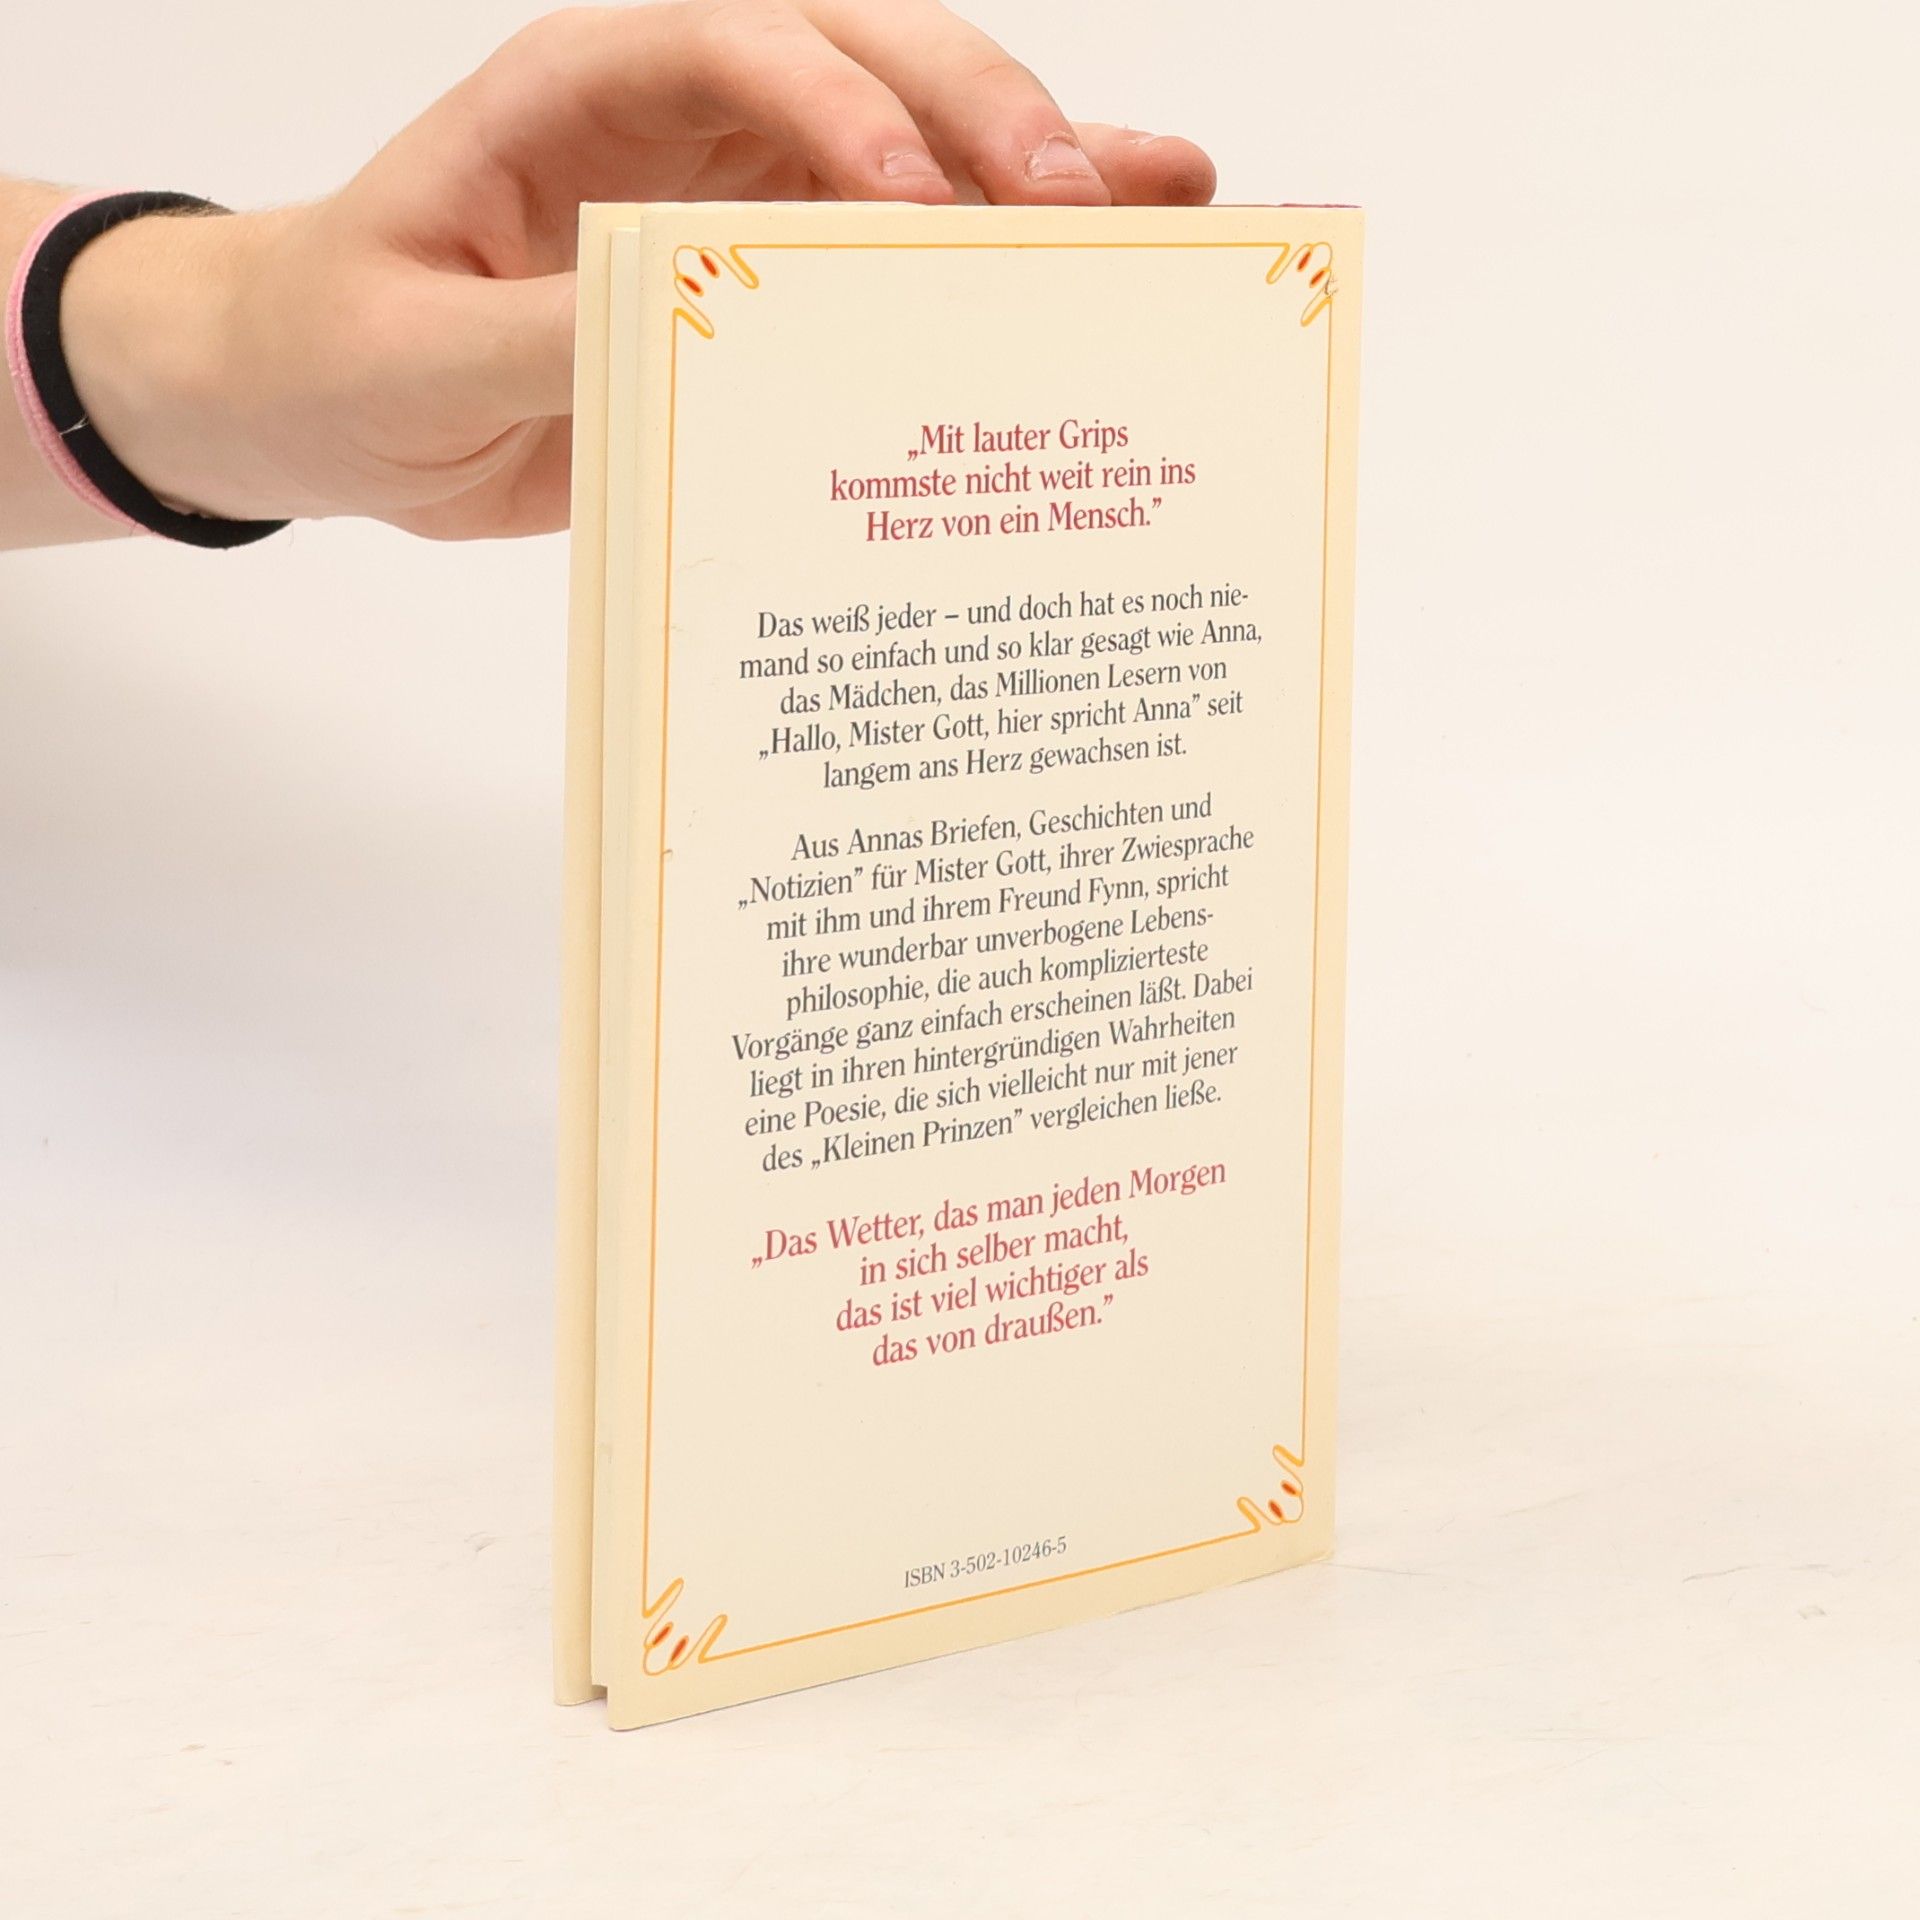 „Mit lauter Grips
kommste nicht weit rein ins
Herz von ein Mensch.”
Das weiß jeder – und doch hat es noch nie-
mand so einfach und so klar gesagt wie Anna,
das Mädchen, das Millionen Lesern von
„Hallo, Mister Gott, hier spricht Anna” seit
langem ans Herz gewachsen ist.
Aus Annas Briefen, Geschichten und
„Notizien” für Mister Gott, ihrer Zwiesprache
mit ihm und ihrem Freund Fynn, spricht
ihre wunderbar unverbogene Lebens-
philosophie, die auch komplizierteste
Vorgänge ganz einfach erscheinen läßt. Dabei
liegt in ihren hintergründigen Wahrheiten
eine Poesie, die sich vielleicht nur mit jener
des „Kleinen Prinzen” vergleichen ließe.
„Das Wetter, das man jeden Morgen
in sich selber macht,
das ist viel wichtiger als
das von draußen.”
ISBN 3-502-10246-5